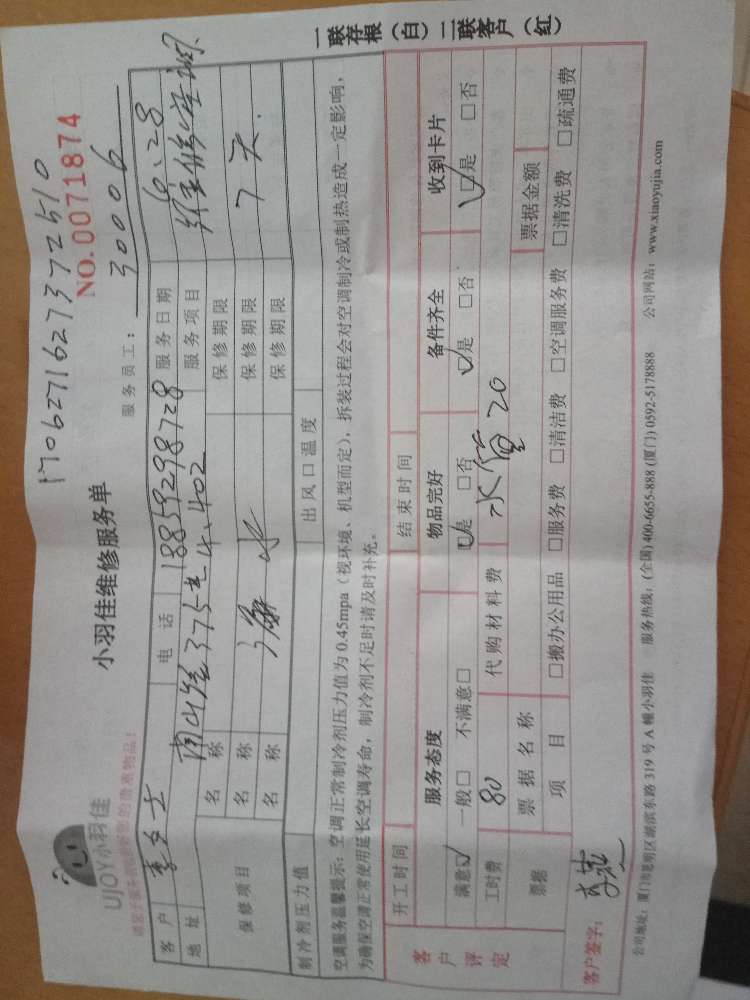 1706271627372510
NO.0071874
UJOY小羽佳
小羽佳维修服务单
服务员工： 30006
客户 李女士 电话 18859298728 服务日期 6.28
地址 南山路375号4.402 服务项目
保修项目 名称 保修期限
名称 漏水 保修期限 7天.
名称 保修期限
制冷剂压力值 出风口温度
空调服务温馨提示：空调正常制冷剂压力值为0.45mpa（视环境、机型而定），拆装过程会对空调制冷或制热造成一定影响，
为确保空调正常使用延长空调寿命，制冷剂不足时请及时补充。
开工时间 结束时间
客户评定 服务态度 物品完好 备件齐全 收到卡片
满意☑ 一般□ 不满意□ ☑是 □否 ☑是 □否 ☑是 □否
工时费 80 代购材料费 水管20
票据 票据名称 票据金额
项目 □搬办公用品 □服务费 □清洁费 □空调服务费 □清洗费 □疏通费
客户签字：
公司地址：厦门市思明区湖滨东路319号A幢小羽佳 服务热线：(全国)400-6655-888 (厦门)0592-5178888 公司网站：www.xiaoyujia.com
一联存根（白）二联客户（红）